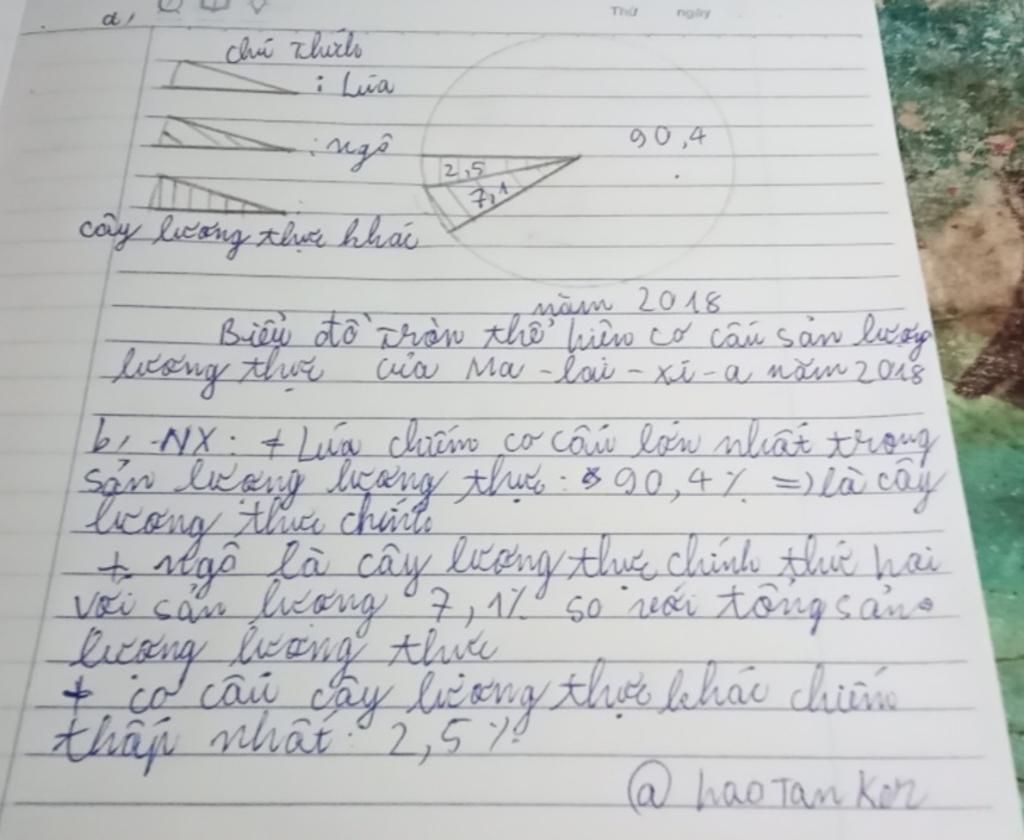 a,
Thứ ngày
chú thích
: Lúa
90,4
: ngô
2,5
7,1
:
cây lương thực khác
năm 2018
Biểu đồ tròn thể hiện cơ cấu sản lượng
lương thực của Ma-lai-xi-a năm 2018
b, -NX: + Lúa chiếm cơ cấu lớn nhất trong
sản lượng lương thực: 90,4% => là cây
lương thực chính
+ ngô là cây lương thực chính thứ hai
với sản lượng 7,1% so với tổng sản
lượng lương thực
+ cơ cấu cây lương thực khác chiếm
thấp nhất: 2,5%
@ haoTanKer